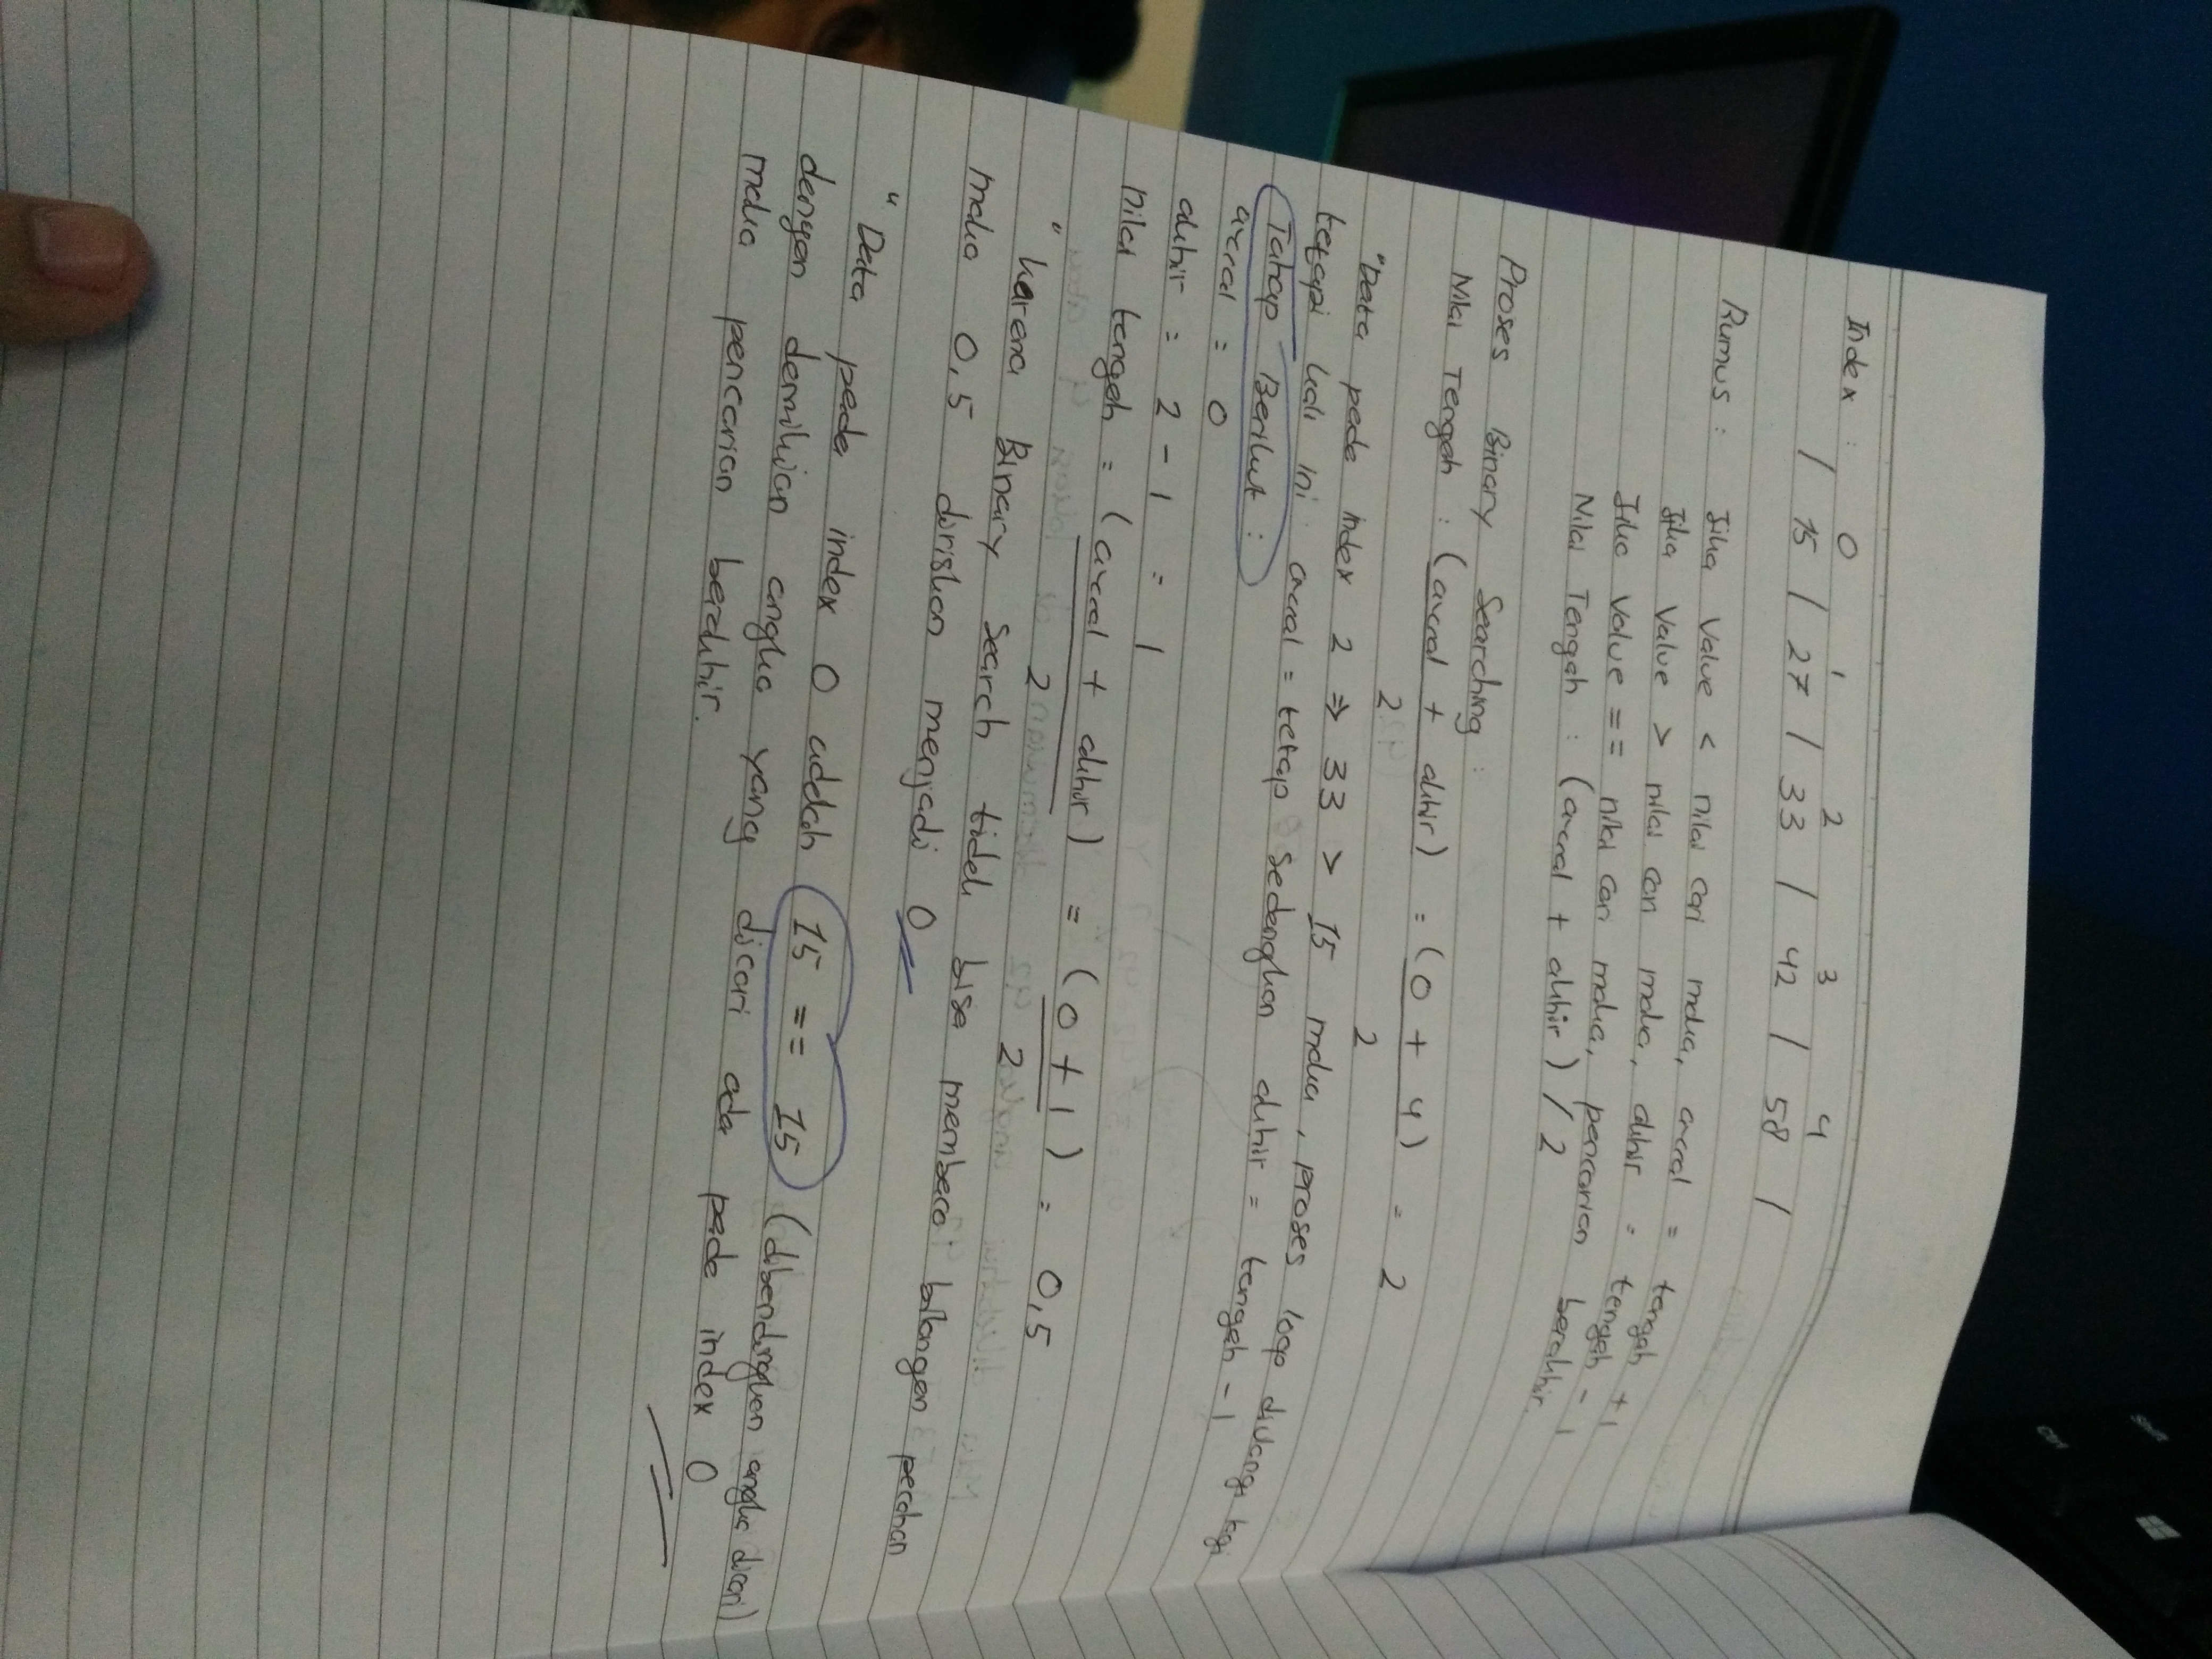 Index : 0 1 2 3 4
/ 15 / 27 / 33 / 42 / 58 /
Rumus : Jika Value < nilai cari maka, awal = tengah + 1
Jika Value > nilai cari maka, akhir = tengah - 1
Jika Value == nilai cari maka, pencarian berakhir.
Nilai Tengah : (awal + akhir) / 2
Proses Binary Searching :
Nilai Tengah : (awal + akhir) = (0 + 4) = 2
2 2
"Data pada index 2 => 33 > 15 maka, proses loop diulangi lagi
tetapi kali ini : awal = tetap sedangkan akhir = tengah - 1
Tahap Berikut :
awal = 0
akhir = 2 - 1 = 1
nilai tengah = (awal + akhir) = (0 + 1) = 0,5
2 2
" karena Binary Search tidak bisa membaca bilangan pecahan
maka 0,5 diriskan menjadi 0
" Data pada index 0 adalah (15 == 15) (dibandingkan angka dicari)
dengan demikian angka yang dicari ada pada index 0
maka pencarian berakhir.
Shift
Ctrl